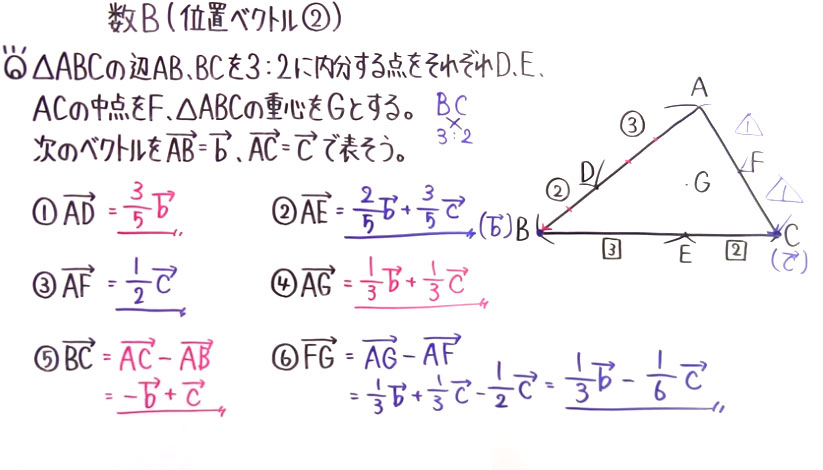 数B(位置ベクトル②)
◎ △ABCの辺AB、BCを3:2に内分する点をそれぞれD、E、
ACの中点をF、△ABCの重心をGとする。
次のベクトルを\overrightarrow{AB}=\overrightarrow{b}、\overrightarrow{AC}=\overrightarrow{c}で表そう。
BC
×
3:2
① \overrightarrow{AD} = \frac{3}{5}\overrightarrow{b}
② \overrightarrow{AE} = \frac{2}{5}\overrightarrow{b}+\frac{3}{5}\overrightarrow{c}
③ \overrightarrow{AF} = \frac{1}{2}\overrightarrow{c}
④ \overrightarrow{AG} = \frac{1}{3}\overrightarrow{b}+\frac{1}{3}\overrightarrow{c}
⑤ \overrightarrow{BC} = \overrightarrow{AC}-\overrightarrow{AB}
= -\overrightarrow{b}+\overrightarrow{c}
⑥ \overrightarrow{FG} = \overrightarrow{AG}-\overrightarrow{AF}
= \frac{1}{3}\overrightarrow{b}+\frac{1}{3}\overrightarrow{c}-\frac{1}{2}\overrightarrow{c} = \frac{1}{3}\overrightarrow{b}-\frac{1}{6}\overrightarrow{c}
A
③
△1
F
D
G
②
△1
(\overrightarrow{b}) B
C
3
E
2
(\overrightarrow{c})